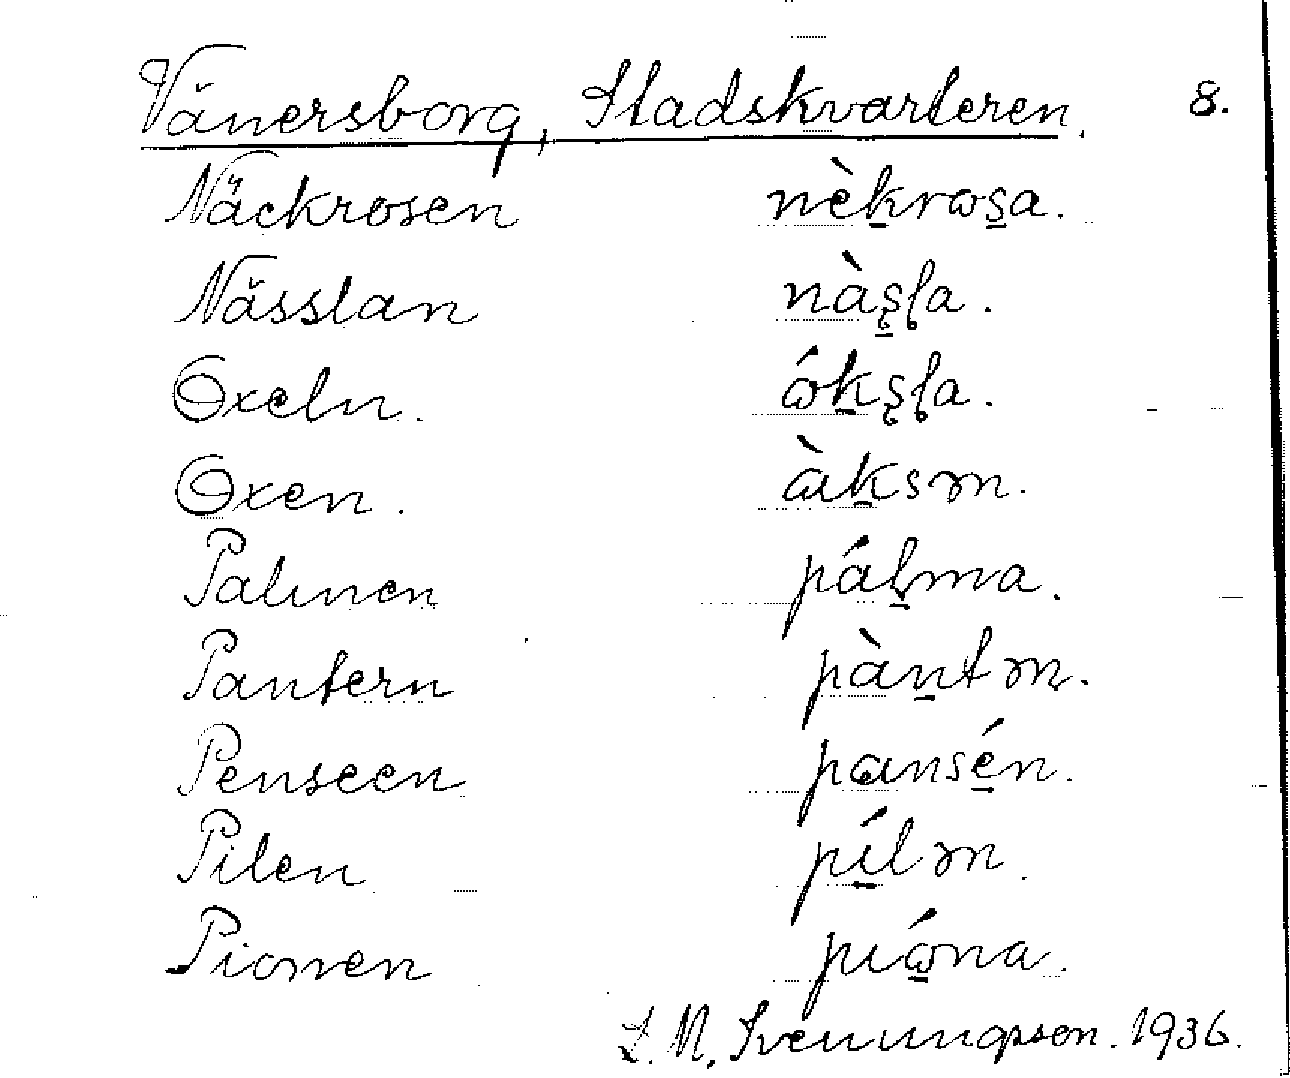 Vänersborg, Stadskvarteren. 8.
Näckrosen nèkrωsa.
Nässlan nàʂɭa.
Oxeln. ώkʂɭa.
Oxen. àksən.
Palmen pálma.
Pantern pàntən.
Penseen pansén.
Pilen pílən.
Pionen pιώna.
L. M. Svenungsson. 1936.